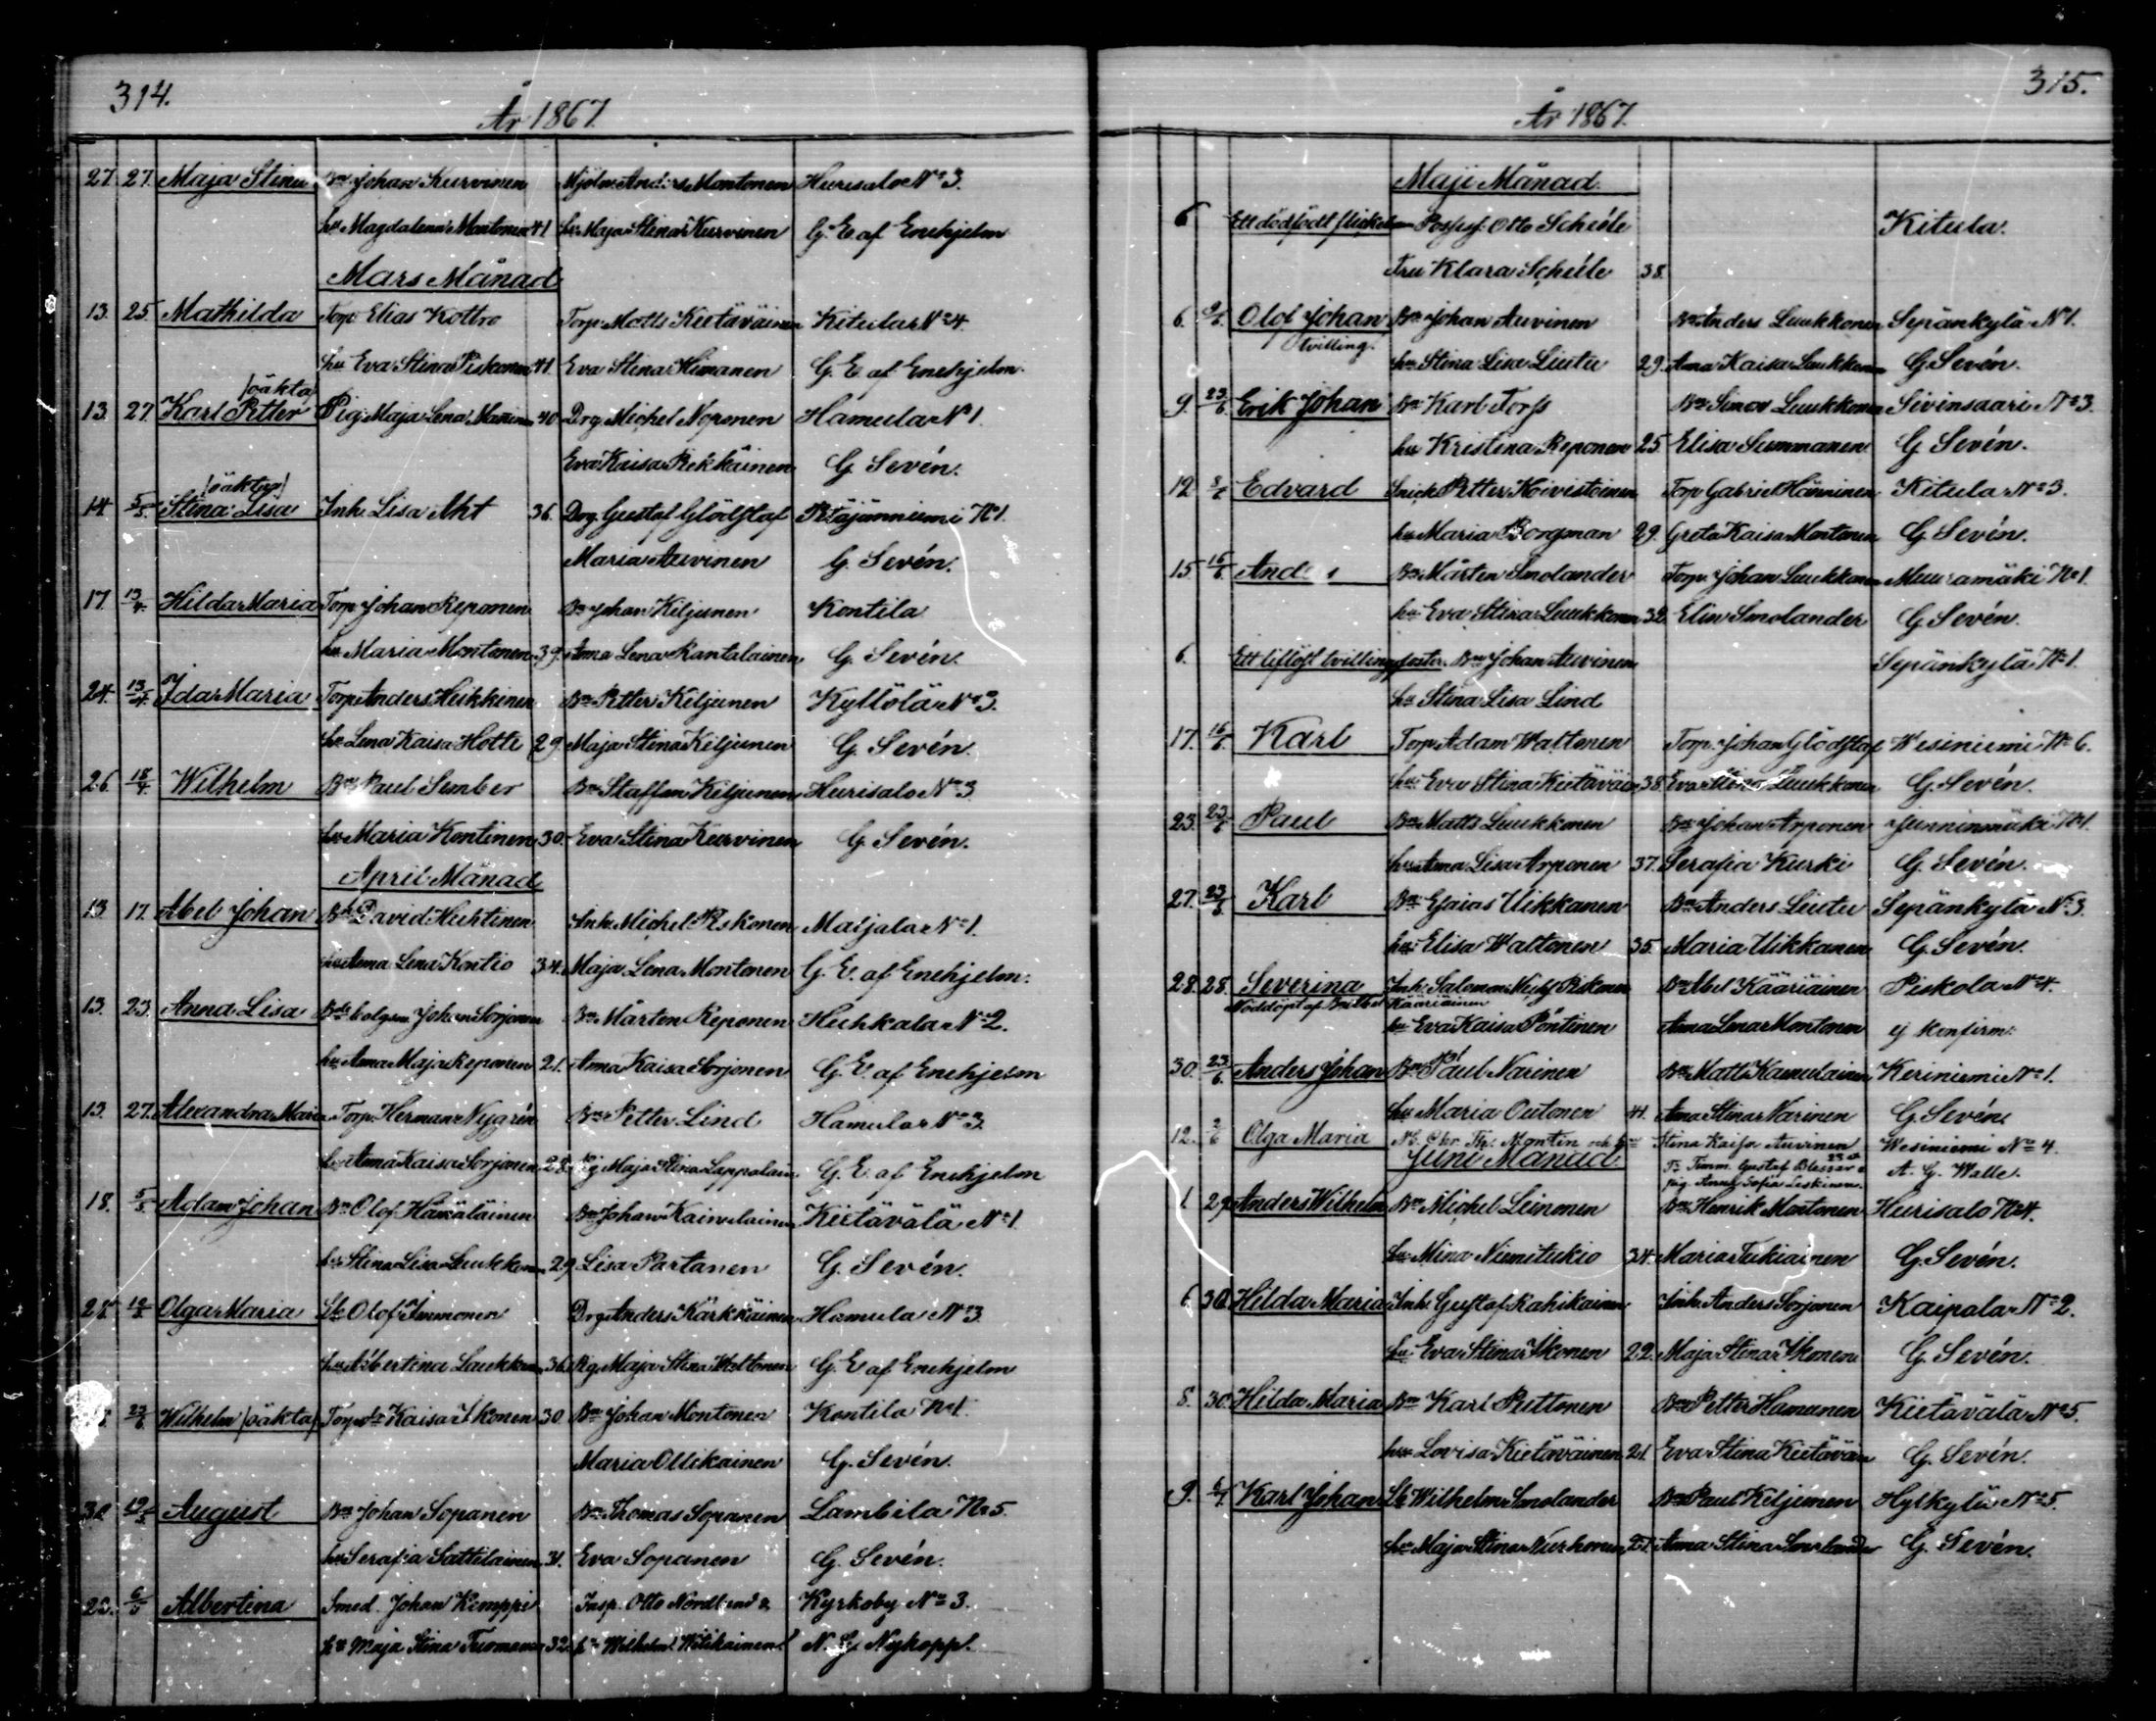 314.
År 1867.
27. 27. Maja Stina Bn Johan Kurvinen Mjöln. Anders Montonen Hurisalo No 3.
hu Magdalena Montonen 41 hu Maja Stina Kurvinen G. E. af Enehjelm
Mars Månad
13. 25. Mathilda Torp. Elias Kottro Torp. Matts Kietäväinen Kitula No 4.
hu Eva Stina Piskonen 41. Eva Stina Himanen G. E. af Enehjelm.
(oäkta)
13. 27. Karl Petter Pig. Maja Lena 40 Drg Michel Noponen Hamula No 1.
Eva Kaisa Pekkäinen G. Sevén.
(oäkta)
14. 5/5. Stina Lisa Inh. Lisa Aht 36. Drg. Gustaf Glödstaf Petäjäniemi No 1.
Maria Auvinen G. Sevén.
17. 13/4. Hilda Maria Torp. Johan Reponen Bn Johan Kiljunen Kontila
hu Maria Montonen 39. Anna Lena Rantalainen G. Sevén.
24. 13/4. Ida Maria Torp. Anders Heikkinen Bn Petter Kiljunen Kyllölä No 3.
hu Lena Kaisa Hotti 29. Maja Stina Kiljunen G. Sevén.
26. 18/4. Wilhelm Bn Paul Sember Bn Staffan Kiljunen Hurisalo No 3
hu Maria Kontinen 30. Eva Stina Kurvinen G. Sevén.
April Månad
13. 17. Abel Johan David Huhtinen Inh. Michel Piskonen Maljala No 1.
hu Anna Lena Kontio 34. Maja Lena Montonen G. E. af Enehjelm.
13. 23. Anna Lisa Johan Sorjonen Bn Mårten Reponen Huhkala No 2.
hu Anna Maja Reponen 21. Anna Kaisa Sorjonen G. E. af Enehjelm
13. 27. Alexandra Maria Torp. Herman Nygrén Bn Petter Lind Hamula No 3
hu Anna Kaisa Sorjonen 28. Pig Maja Stina Lappalain G. E. af Enehjelm
18. 5/5 Adam Johan Bn Olof Häkäläinen Bn Johan Kainulainen Kiitävälä No 1.
hu Stina Lisa Luukkonen 29 Lisa Partanen G. Sevén.
Olga Maria Olof Immonen Drg Anders Kärkkäinen Hamula No 3.
hu Albertina Luukkonen 36. Pig. Maja Stina Waltonen G. E. af Enehjelm
23/6. Wilhelm (oäkta) Kaisa Ikonen 30 Bn Johan Montonen Kontila No 1.
Maria Ollikainen G. Sevén.
30. 19/5 August Bn Johan Sopanen Bn Thomas Sopanen Lambila No 5.
hu Serafia Sattilainen 31. Eva Sopanen G. Sevén.
6/5 Albertina Smed. Johan Kemppi Insp. Otto Nordlund & Kyrkoby No 3.
hu Maja Stina Turmanen 32. Wilhelm. Witikainen. N. G. Nykopp.
315.
År 1867.
Maji Månad.
6 Ett dödfödt flickebarn Otto Schéele Kitula.
Fru Klara Schéele 38.
6. 9/6. Olof Johan Bn Johan Auvinen Bn Anders Luukkonen Sepänkylä No 1.
tvilling.
hu Stina Lisa Liutu 29. Anna Kaisa Luukkonen G. Sevén.
9. 23/6. Erik Johan Bn Karl Torss Bn Simon Luukkonen Sivinsaari No 3.
hu Kristina Reponen 25. Elisa Summanen G. Sevén.
12. Edvard Snick. Petter Koivistoinen Torp Gabriel Hänninen Kitula No 3.
hu Maria Borgman 29. Greta Kaisa Montonen G. Sevén.
15. 16/6. Anders Bn Mårten Smolander Torp. Johan Luukkonen Muuramäki No 1.
hu Eva Stina Luukkonen 32. Elin Smolander G. Sevén.
6. Ett liflöst tvillingfoster. Bn Johan Auvinen Sepänkylä No 1.
hu Stina Lisa Lind
17. 16/6. Karl Torp. Adam Waltonen Torp. Johan Glödstaf Wesiniemi No 6.
hu Eva Stina Kietäväin 38. Eva Stina Luukkonen G. Sevén.
23. 23/6. Paul Bn Matts Luukkonen Bn Johan Arponen Junninmäki No 1.
hu Anna Lisa Arponen 37. Serafia Kurki G. Sevén.
27. 23/6 Karl Bn Esaias Uikkanen Bn Anders Liutu Sepänkylä No 3.
hu Elisa Waltonen 35. Maria Uikkanen G. Sevén.
28. 28. Severina Inh. Salomon Bn Abel Kääriäinen Piskola No 4.
Nöddöpt af Kääriäinen
hu Eva Kaisa Pöntinen Anna Lena Montonen ej konfirm.
30. 23/6. Anders Johan Bn Paul Narinen Bn Matts Kamulainen Keriniemi No 1.
hu Maria Outonen 41. Anna Stina Narinen G. Sevén.
12. 2/6 Olga Maria Montin och hu Stina Kaisa Auvinen Wesiniemi No 4.
Juni Månad. Timm. Gustaf Blessar A. G. Walle.
pig. Anna Sofia Leskinen.
1. 29. Anders Wilhelm Bn Michel Leinonen Bn Henrik Montonen Hurisalo No 4.
hu Mina Niemitukio 34. Maria Tukiainen G. Sevén.
6. 30. Hilda Maria Inh. Gustaf Rahikainen Inh. Anders Sorjonen Kaipola No 2.
hu Eva Stina Ikonen 22. Maja Stina Ikonen G. Sevén.
8. 30. Hilda Maria Bn Karl Puttonen Bn Petter Hamunen Kiitävälä No 5.
hu Lovisa Kietäväinen 21. Eva Stina Kietäväin G. Sevén.
9. Karl Johan Wilhelm Smolander Bn Paul Kiljunen Hylkylä No 5.
hu Maja Stina Nurhonen Anna Stina Smolander G. Sevén.